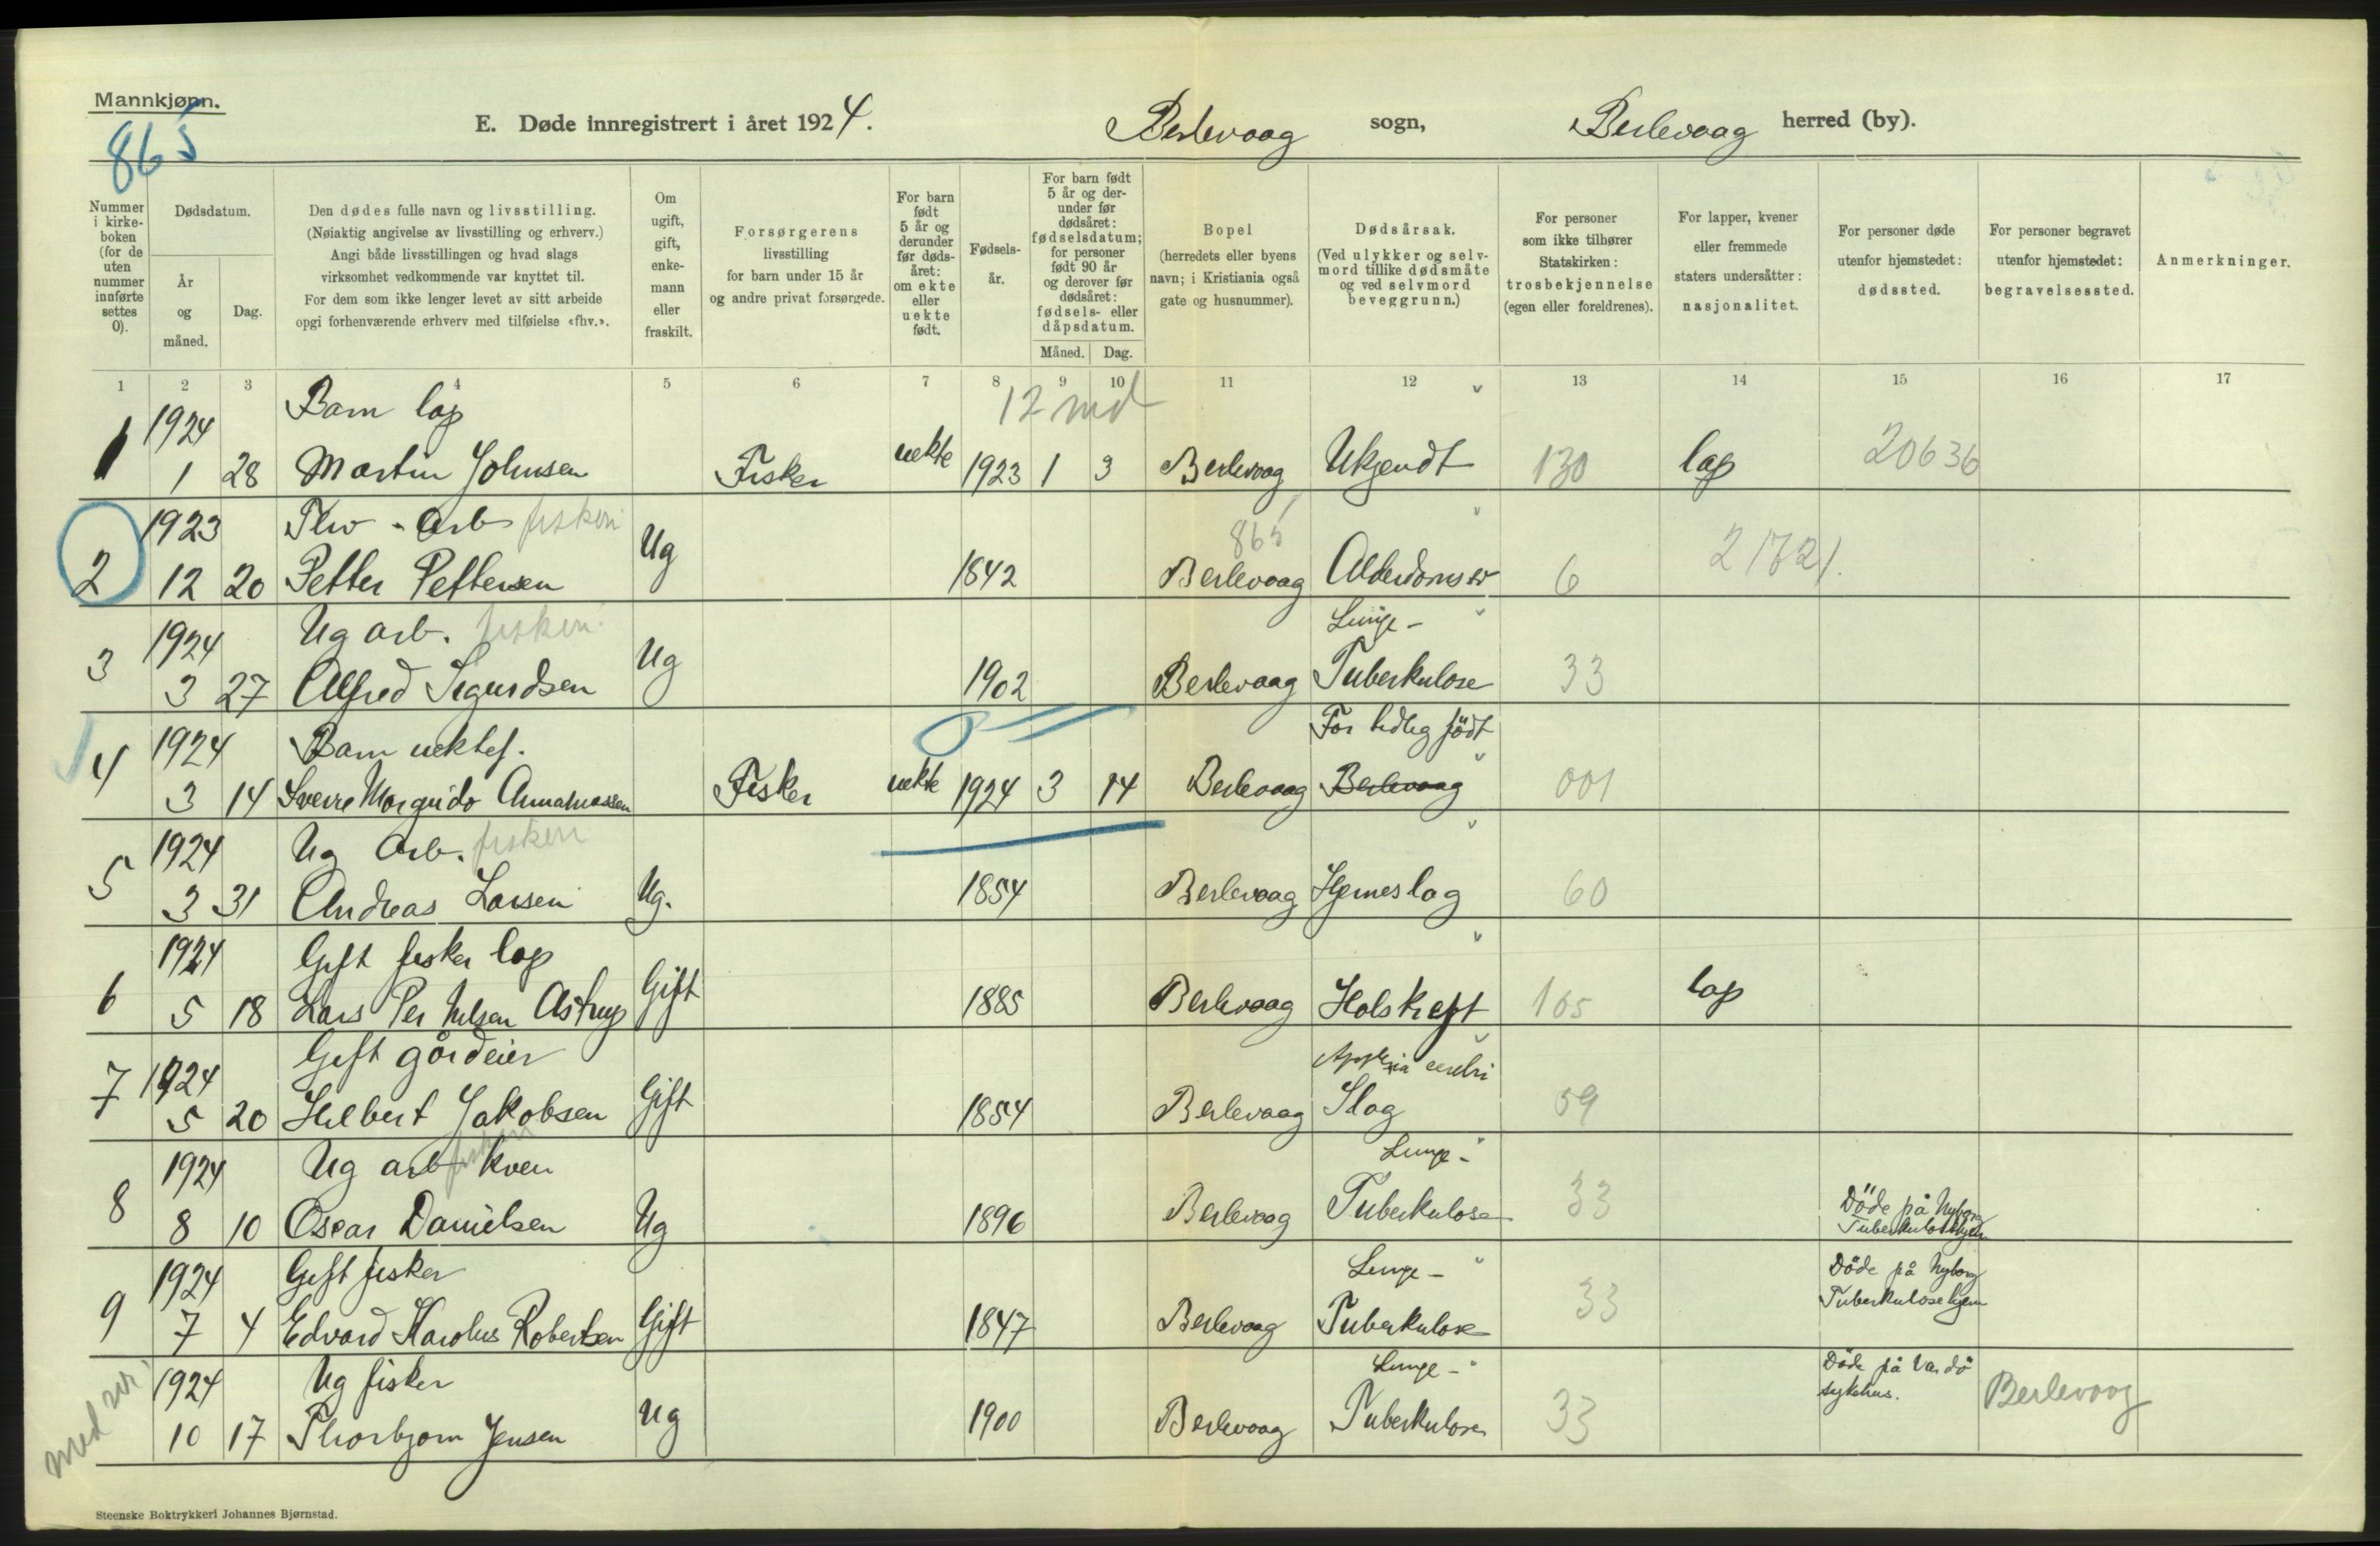 Mannkjønn.
865
E. Døde innregistrert i året 1924.
Berlevaag sogn, Berlevaag herred (by).
Nummer i kirke-boken (for de uten nummer innførte settes 0).
Dødsdatum.
År og måned.
Dag.
Den dødes fulle navn og livsstilling.
(Nøiaktig angivelse av livsstilling og erhverv.)
Angi både livsstillingen og hvad slags
virksomhet vedkommende var knyttet til.
For dem som ikke lenger levet av sitt arbeide
opgi forhenværende erhverv med tilføielse «fhv.».
Om ugift, gift, enke-mann eller fraskilt.
Forsørgerens
livsstilling
for barn under 15 år
og andre privat forsørgede.
For barn født 5 år og derunder før døds-året: om ekte eller uekte født.
Fødsels-år.
For barn født 5 år og der-under før dødsåret: fødselsdatum; for personer født 90 år og derover før dødsåret: fødsels- eller dåpsdatum.
Måned. Dag.
Bopel
(herredets eller byens
navn; i Kristiania også
gate og husnummer).
Dødsårsak.
(Ved ulykker og selv-
mord tillike dødsmåte
og ved selvmord
beveggrunn.)
For personer
som ikke tilhører
Statskirken:
trosbekjennelse
(egen eller foreldrenes).
For lapper, kvener
eller fremmede
staters undersåtter:
nasjonalitet.
For personer døde
utenfor hjemstedet:
dødssted.
For personer begravet
utenfor hjemstedet:
begravelsessted.
Anmerkninger.
1 2 3 4 5 6 7 8 9 10 11 12 13 14 15 16 17
1924 Barn lap 12 md
1 1 28 Martin Johnsen Fisker uekte 1923 1 3 Berlevaag Ukjendt 130 lap 20636
1923 Fhv - Arb fiskeri 865
2 12 20 Petter Pettersen Ug 1842 Berlevaag Alderdomssv 6 21721.
1924 Ug arb. fiskeri Lunge-
3 3 27 Alfred Sigurdsen Ug 1902 Berlevaag Tuberkulose 33
1924 Barn uektef. For tidlig født
4 3 14 Sverre Margido Annanassen Fisker uekte 1924 3 14 Berlevaag Berlevaag 001
1924 Ug Arb. fiskeri
5 3 31 Andreas Larsen Ug. 1854 Berlevaag Hjerneslag 60
1924 Gift fisker lap
6 5 18 Lars Per Nilsen Astrup Gift 1885 Berlevaag Halskreft 105 lap
1924 Gift gårdeier Apoplexia cerebri
7 5 20 Hilbert Jakobsen Gift 1854 Berlevaag Slag 59
1924 Ug arb fiskeri kven Lunge-
8 8 10 Oscar Danielsen Ug 1896 Berlevaag Tuberkulose 33 Døde på Nyborg Tuberkulosehjem
1924 Gift fisker Lunge-
9 7 4 Edvard Karolus Robertsen Gift 1847 Berlevaag Tuberkulose 33 Døde på Nyborg Tuberkulosehjem
1924 Ug fisker Lunge-
10 17 Thorbjørn Jensen Ug 1900 Berlevaag Tuberkulose 33 Døde på Vardø sykehus. Berlevaag
Steenske Boktrykkeri Johannes Bjørnstad.